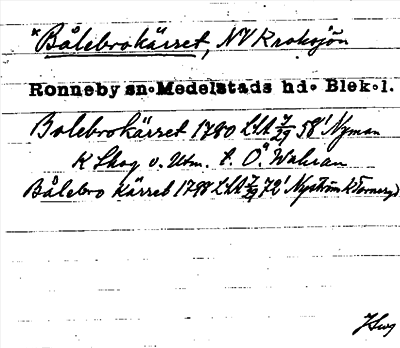 "Bålebrokärret, NV Kroksjön
Ronneby sn. Medelstads hd. Blek. l.
Bolebrokärret 1780 LSA 7/29 58' Nyman
K Skog o. Utm. t. Ö. Walnan
Bålebro kärret 1798 LSA 7/29 72' Nyström K Torneryd